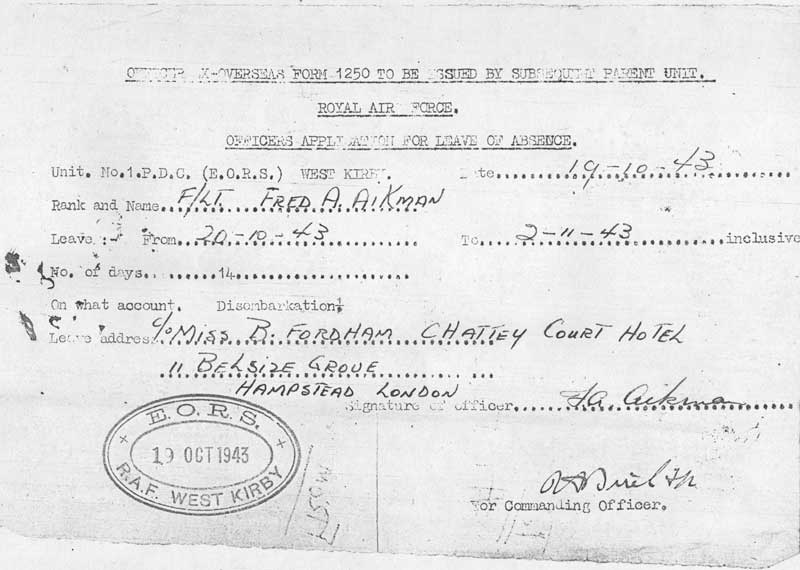 OFFICER EX-OVERSEAS FORM 1250 TO BE ISSUED BY SUBSEQUENT PARENT UNIT.
ROYAL AIR FORCE.
OFFICERS APPLICATION FOR LEAVE OF ABSENCE.
Unit. No.1.P.D.C. (E.O.R.S.) WEST KIRBY. Date 19-10-43
Rank and Name F/LT FRED A. AIKMAN
Leave :- From 20-10-43 To 2-11-43 inclusive
No. of days 14
On what account. Disembarkation
Leave address c/o MISS B. FORDHAM CHATTEY COURT HOTEL
11 BELSIZE GROVE
HAMPSTEAD LONDON
Signature of officer F.A. Aikman
E.O.R.S.
19 OCT 1943
R.A.F. WEST KIRBY
For Commanding Officer.